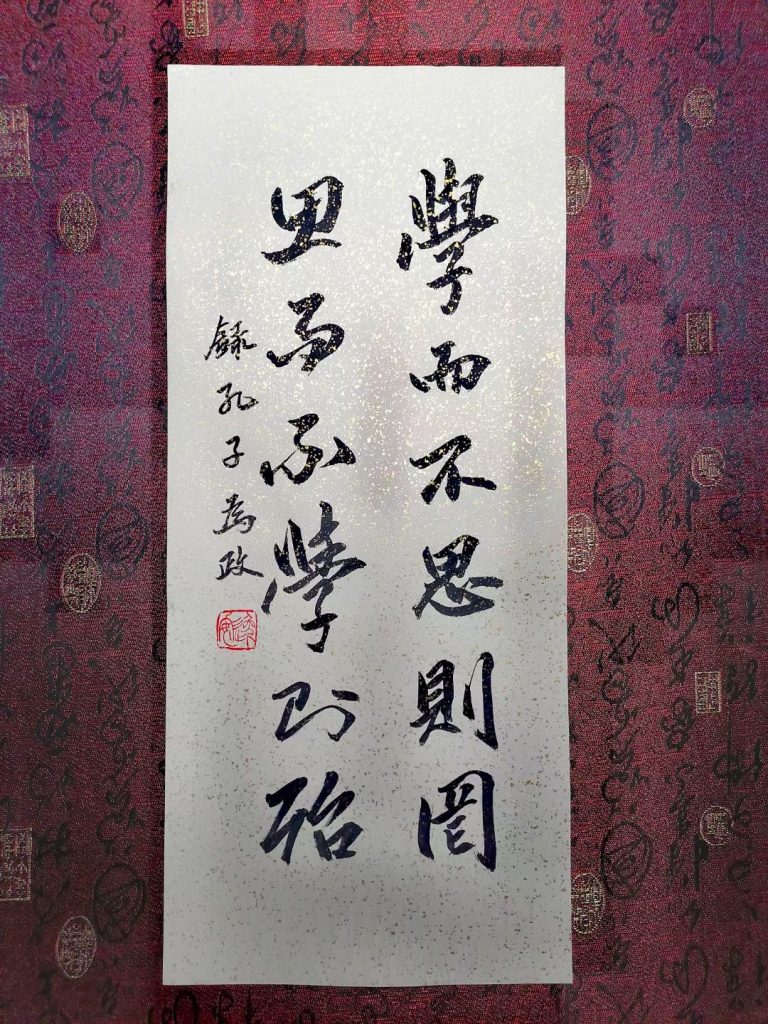 學而不思則罔
思而不學則殆
錄孔子為政